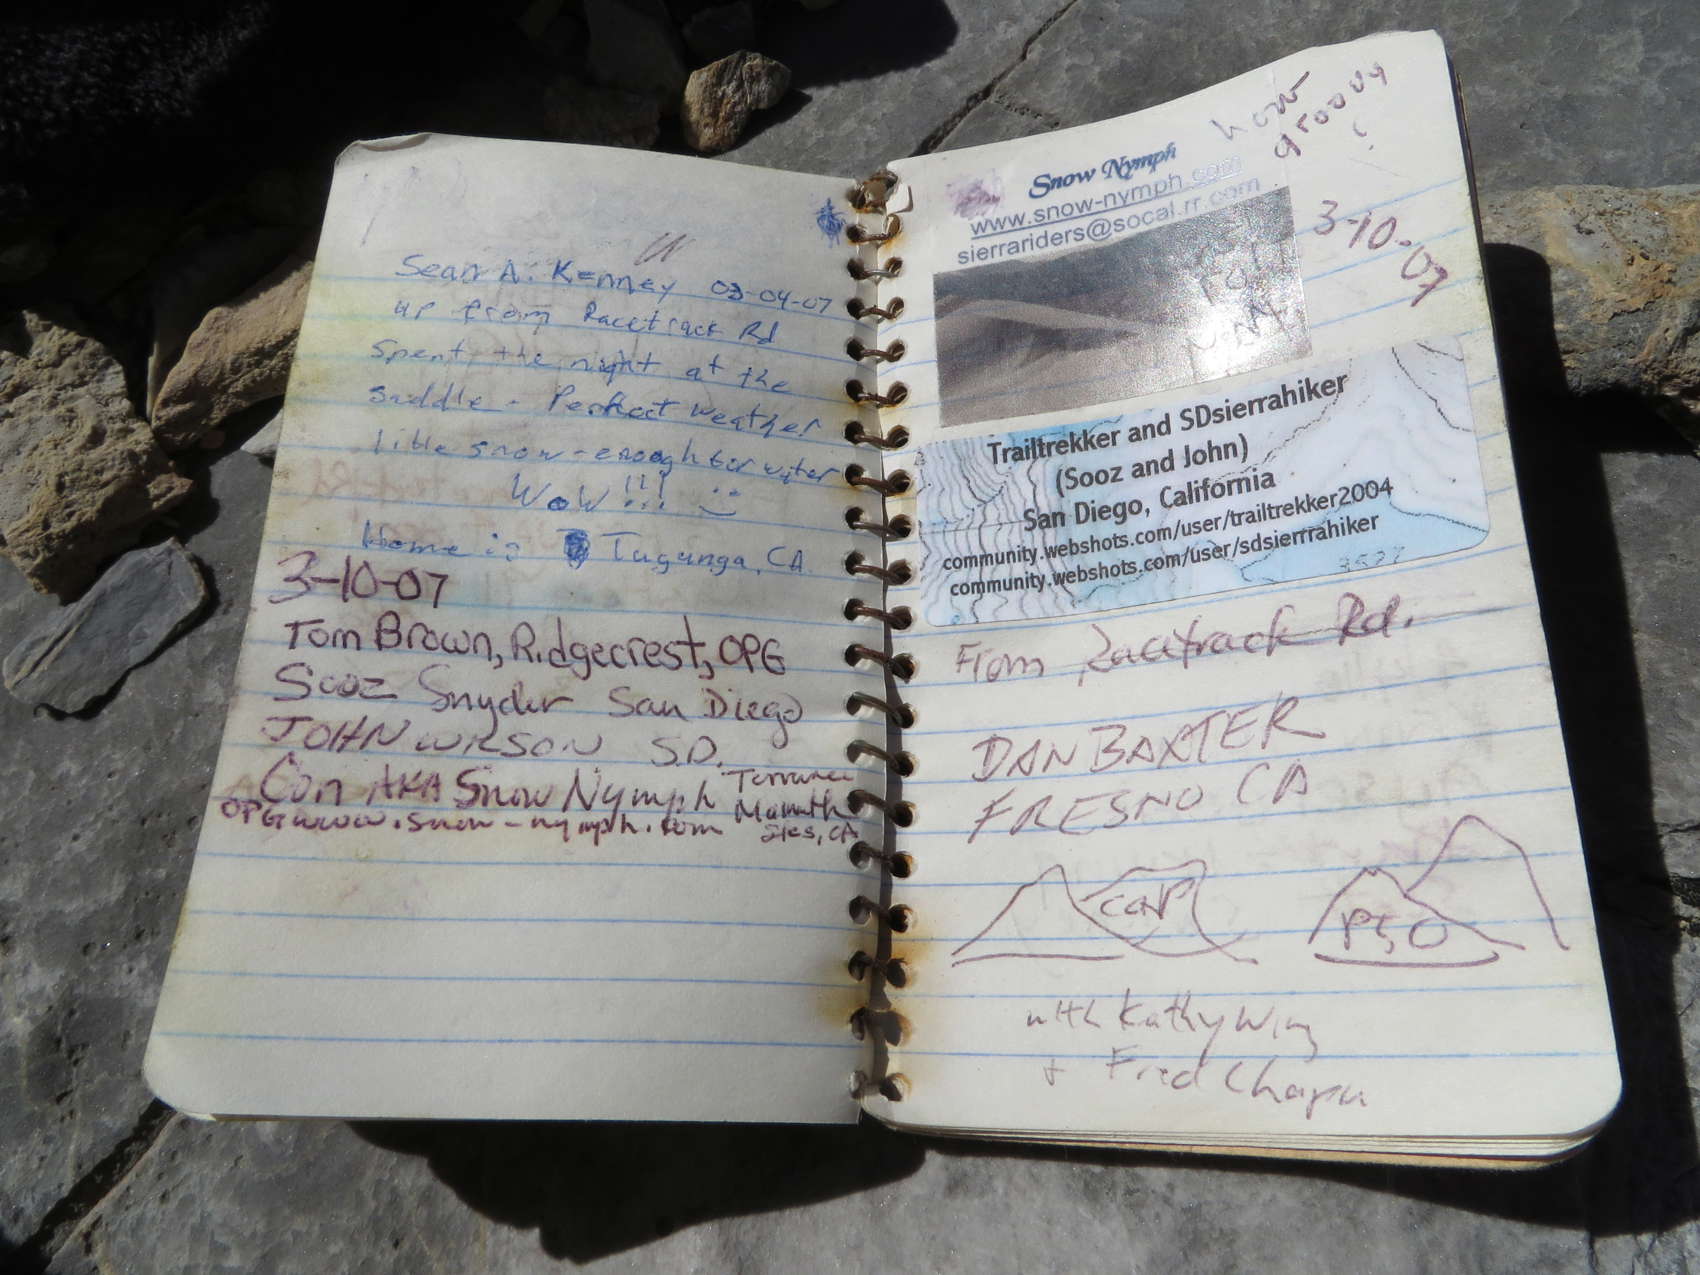 Sean A. Kenney 03-04-07
up from Racetrack Rd
spent the night at the
saddle - Perfect weather
little snow - enough for water
WOW!!! :)
Home is Tugunga, CA.
3-10-07
Tom Brown, Ridgecrest, OPG
Sooz Snyder San Diego
JOHN WILSON S.D.
AKA Snow Nymph
OPG www.snow-nymph.com
CA
how
groovy
Snow Nymph
www.snow-nymph.com
sierrariders@socal.rr.com
3-10-07
Trailtrekker and SDsierrahiker
(Sooz and John)
San Diego, California
community.webshots.com/user/trailtrekker2004
community.webshots.com/user/sdsierrrahiker
From Racetrack Rd.
DAN BAXTER
FRESNO CA
with Kathy Wing
+ Fred